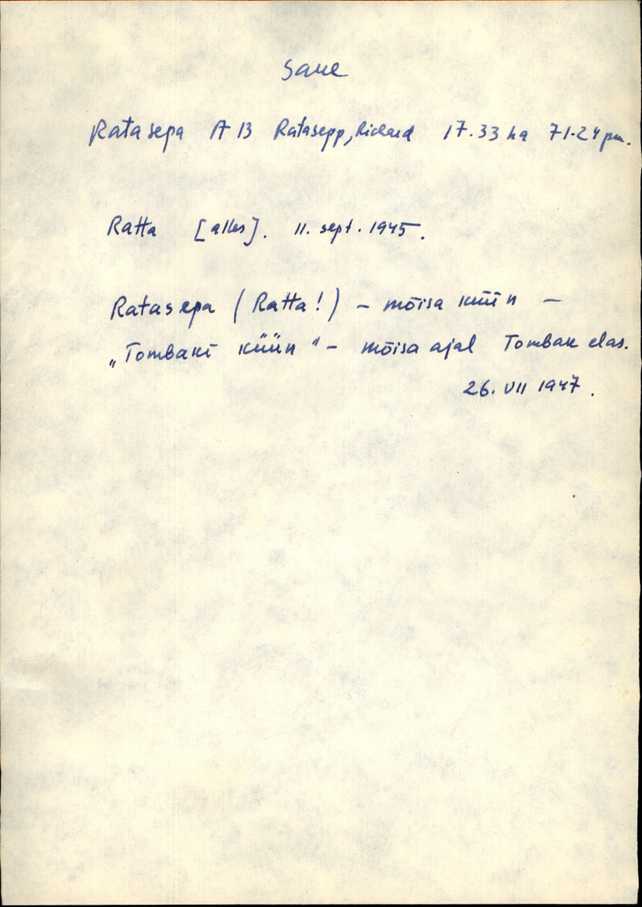 Saue
Ratasepa A 13 Ratasepp, Richard 17.33 ha 71-24 pm.
Ratta [alles]. 11. sept. 1945.
Ratasepa (Ratta!) – mõisa küün –
„Tombaki küün“ – mõisa ajal Tombak elas.
26. VII 1947.